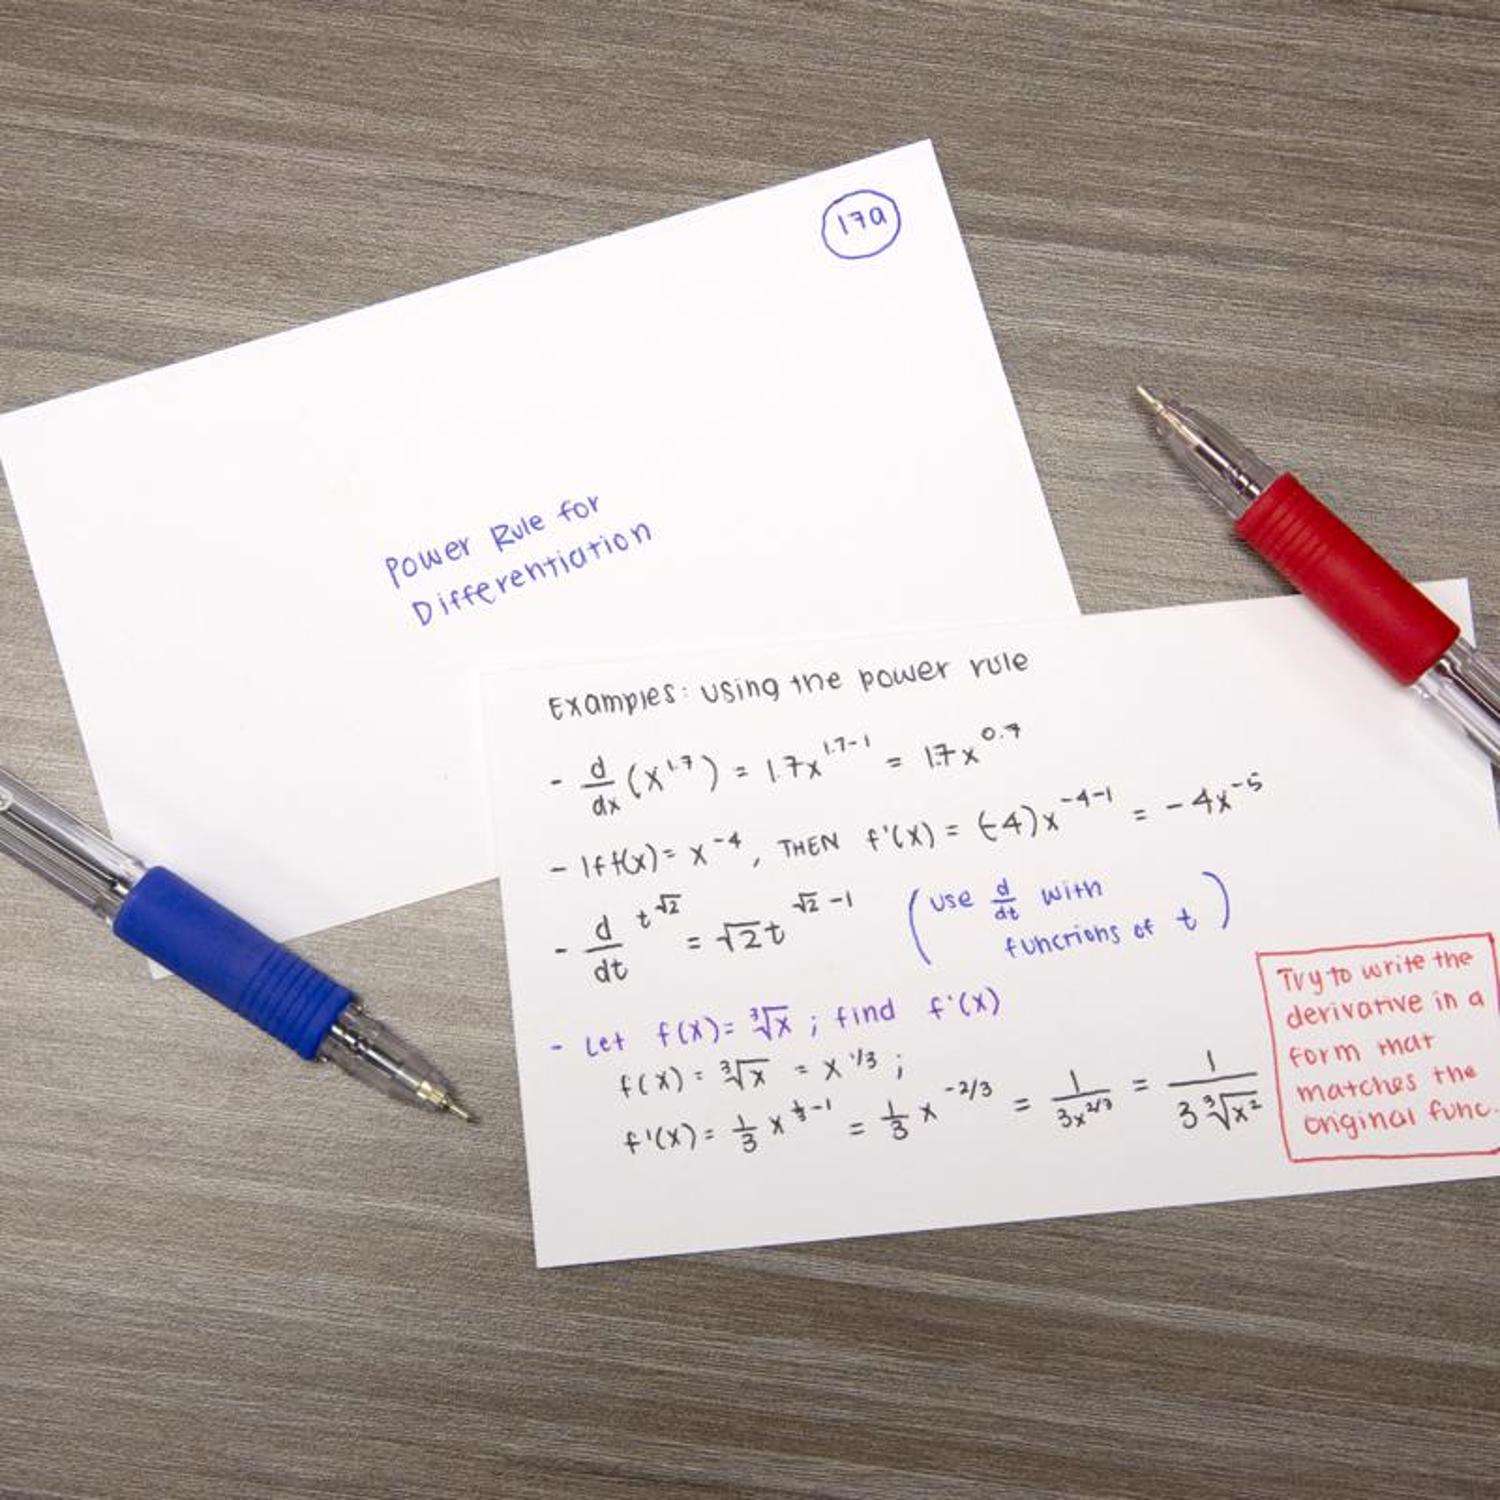 17a
Power Rule for
Differentiation
Examples: using the power rule
- d/dx (x^1.7) = 1.7x^1.7-1 = 1.7x^0.7
- If f(x) = x^-4, THEN f'(x) = (-4)x^-4-1 = -4x^-5
- d/dt t^√2 = √2t^√2-1 (use d/dt with
functions of t)
- Let f(x) = ∛x ; find f'(x)
f(x) = ∛x = x^1/3 ;
f'(x) = 1/3 x^1/3-1 = 1/3 x^-2/3 = 1/3x^2/3 = 1/3∛x^2
Try to write the
derivative in a
form that
matches the
original func.